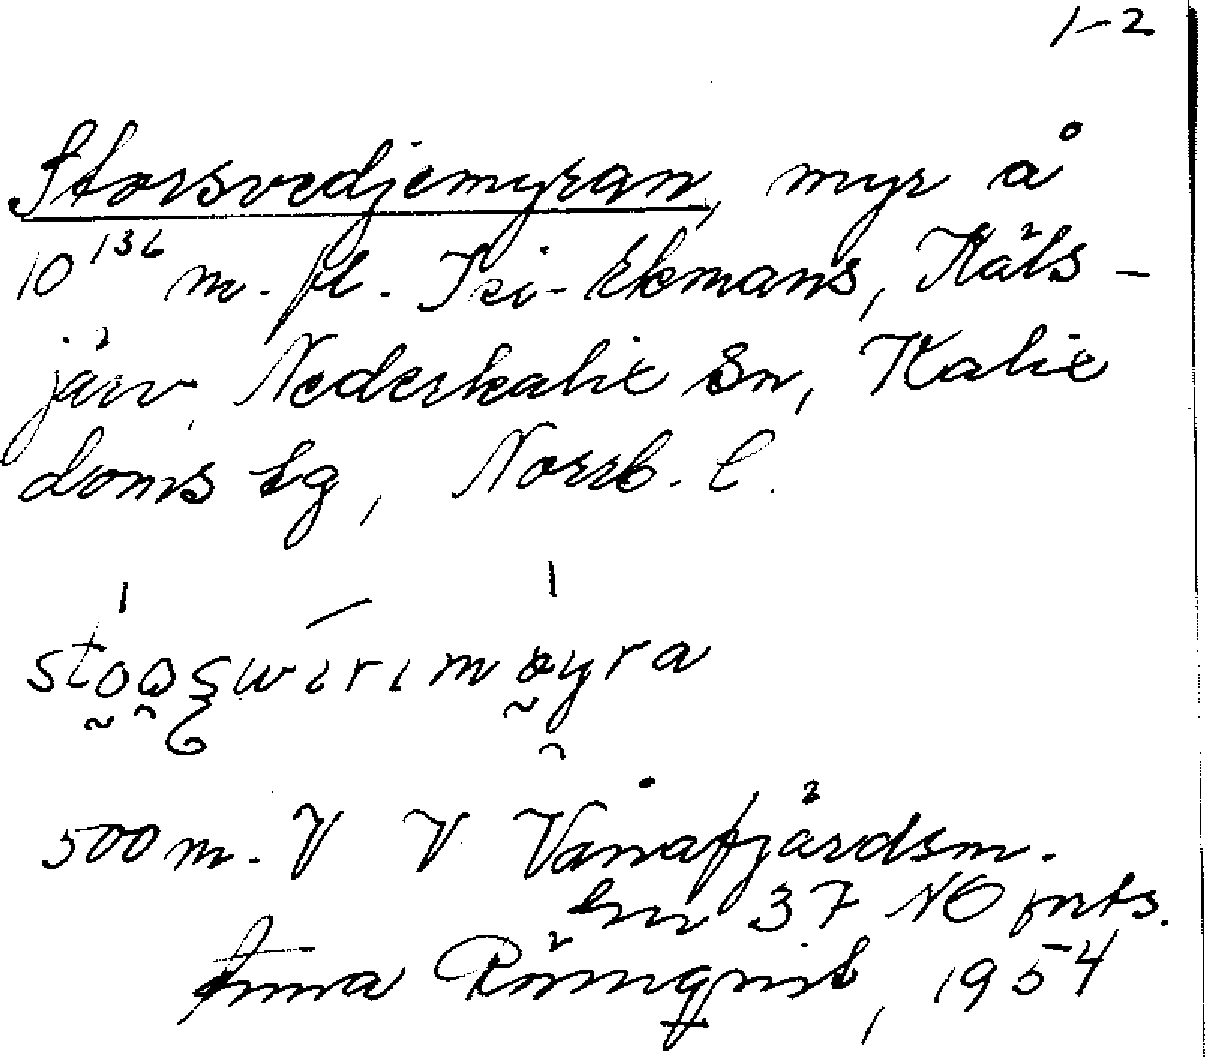 1-2
Storsvedjemyran, myr å
10 136 m. fl. Isi-Ekmans, Räts-
järv, Nederkalix Sn, Kalix
doms lg, Norrb. l.
500 m. V V Vånafjärdsm.
37 NO fnts.
Anna Rönnqvist, 1954